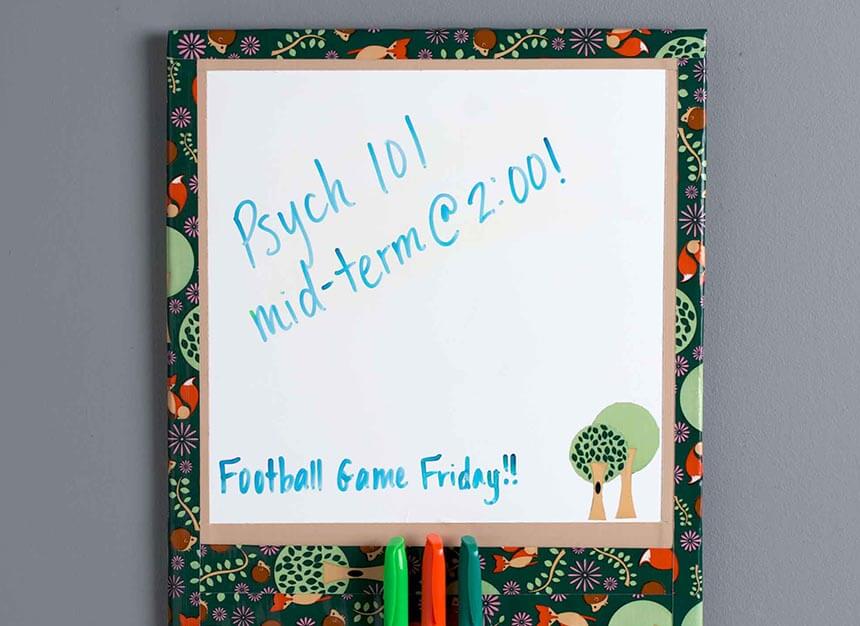 Psych 101
mid-term @ 2:00!
Football Game Friday!!